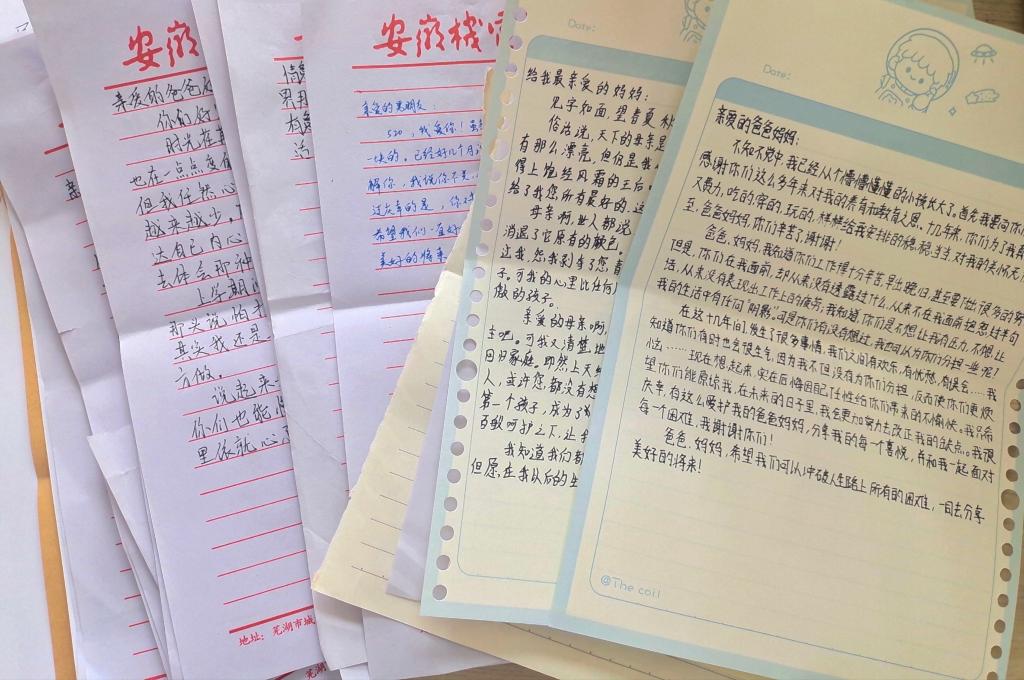 安徽
亲爱的爸爸
你们好
时光荏
也在一点点变
但我任然心
越来越少。
达自己内心
去体会那种
上学期
那头说怕来
其实我还是
方做。
说起来
你们也能
里依就心
地址：芜湖市城
芜湖
有
活
安徽机电
亲爱的男朋友：
520，我爱你！虽
一块的。已经好几个月
解你，我说你不美
过庆幸的是，你
希望我们一直好
美好的将来
给我最亲爱的妈妈：
见字如面，望春夏秋
俗话说，天下的母亲是
有那么漂亮，但仍是我
得上饱经风霜的王后。
给了我您所有最好的，这
母亲啊，世人都说
消退了它原有的颜色。
过我，怨我剥夺了您，青
子。可我的心里比任何
傲的孩子。
亲爱的母亲啊，
主吧。可我又清楚地
因归家庭。即然上天
人，或许您都没有想
第一个孩子，成为了
百般呵护之下，让我
我知道我们都
但愿，在我以后的生
Date:
Date:
亲爱的爸爸妈妈：
不知不觉中，我已经从个懵懵懂懂的小孩长大了。首先我要向你
感谢你们这么多年来对我的养育和教育之恩。十几年来，你们为了我真
又费力，吃的、穿的、玩的，样样给我安排的稳稳当当，对我的关怀无
至，爸爸妈妈，你们辛苦了，谢谢！
爸爸，妈妈，我知道你们工作得十分辛苦，早出晚归，甚至要付出很多的努
但是，你们在我面前，却从来没有透露过什么，从来不在我面前抱怨过半句
话，从来没有表现出工作上的疲劳，我知道，你们是不想让我有压力，不想让
我的生活中有任何“阴影”。可是你们有没有想过，我也可以为你们分担一些呢？
在这十几年间，发生了很多事情，我们之间有欢乐，有忧愁，有误会……我
知道你们有时也会很生气，因为我不但没有为你们分担，反而使你们更烦
心……现在想起来，实在后悔因配任性给你们带来的不愉快。我希
望你们能原谅我，在未来的日子里，我会更加努力去改正我的缺点。我很
庆幸，有这么爱护我的爸爸妈妈，分享我的每一个喜悦，并和我一起面对
每一个困难，我谢谢你们！
爸爸，妈妈，希望我们可以冲破人生路上所有的困难，一同去分享
美好的将来！
@The coil